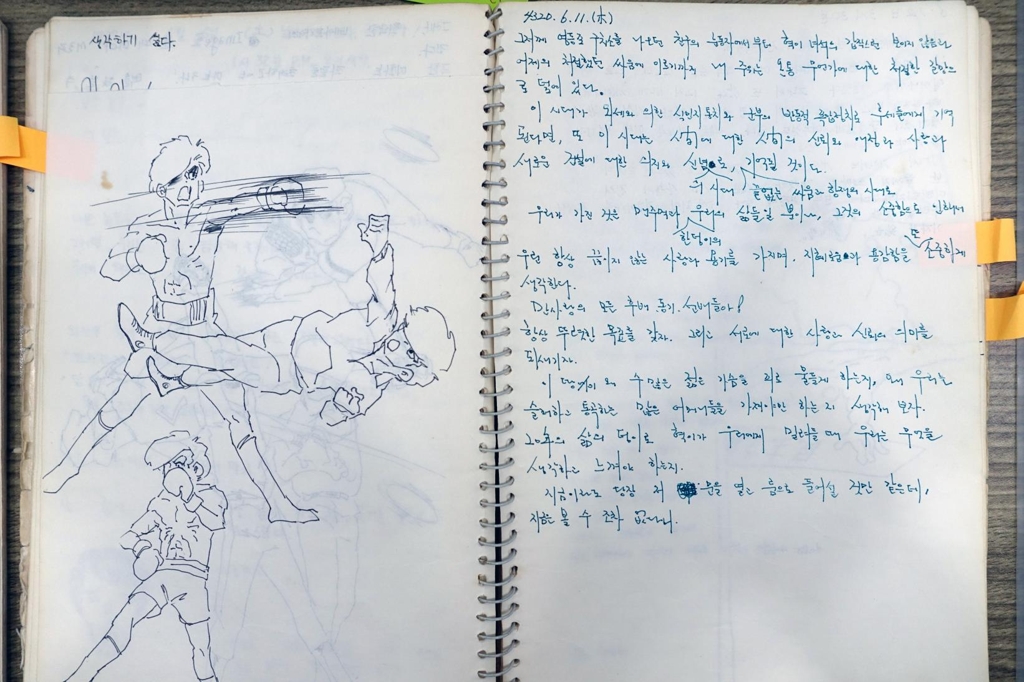 생각하기 싫다.
4320. 6. 11. (木)
그저께 영등포 구치소를 나오던 친구의 눈동자에서부터 혁이 녀석의 갑작스런
어제의 처절했던 싸움에 이르기까지 내 주위는 온통 무언가에 대한 처절한 갈망으
로 덮여 있다.
이 시대가 외세와 의한 식민지통치와 군부의 반동적 폭압정치로 후세들에게 기억
된다면, 또 이 시대는 사람에 대한 사람의 신뢰와 애정과 사랑과
새로운 것에 대한 의지와 신념으로, 기억될 것이다.
이 시대 끝없는 싸움과 항쟁의 시대로
우리가 가진 것은 맨주먹과 우리의 삶들일 뿐이나, 그것의 소중함으로 인하여
한덩이의
우린 항상 끊이지 않는 사랑과 용기를 가지며, 지혜로움과 용감함을 또 소중하게
생각한다.
만사형의 모든 후배 동기 선배들아!
항상 뚜렷한 목표를 갖자. 그리고 서로에 대한 사랑과 신뢰의 의미를
되새기자.
이 땅이 왜 수많은 젊은 가슴을 피로 물들게 하는지, 왜 우리는
슬퍼하고 통곡하는 많은 어머니들을 가져야만 하는지 생각해 보자.
20年의 삶의 덩이로 혁이가 우리에게 밀려들 때 우리는 무엇을
생각하고 느껴야 하는지.
지금이라도 당장 저 문을 열고 룸으로 들어설 것만 같은데,
자는 볼 수 조차 없다니.